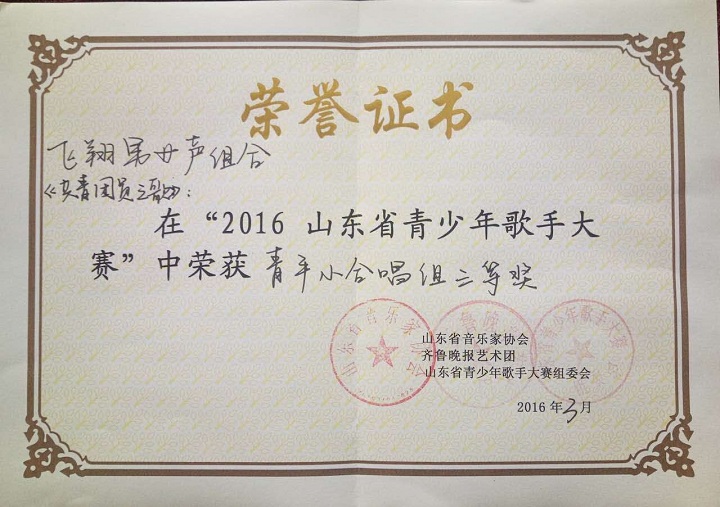 荣誉证书
飞翔男女声组合
《共青团员之歌》：
在“2016 山东省青少年歌手大
赛”中荣获 青年小合唱组三等奖
山东省音乐家协会
齐鲁晚报艺术团
山东省青少年歌手大赛组委会
2016年3月
山东省音乐家协会